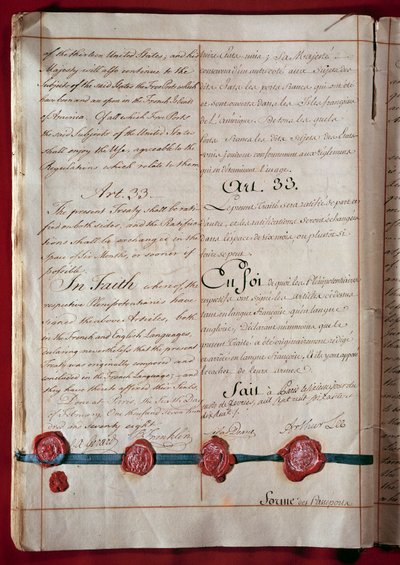 of the thirteen United States; and his
Majesty will also continue to the
Subjects of the said States, the Free Ports which
have been and are open in the French Islands
of America. Of all which Free Ports
the said Subjects of the United States
shall enjoy the Use, agreeable to the
Regulations which relate to them
Art. 33.
The present Treaty shall be rati-
fied on both sides, and the Ratifica-
tions shall be exchanged in the
Space of Six Months, or sooner if
possible.
In Faith whereof the
respective Plenipotentiaries have
signed the above Articles, both
in the French and English Languages,
declaring nevertheless that the present
Treaty was originally composed and
concluded in the French Language; and
they have thereto affixed their Seals
Done at Paris, this Sixth Day
of February, One thousand Seven hundred
and seventy eight
B Franklin
treize Etats unis; Sa Majesté
conservera en outre aux Sujets des
dits Etats, les ports francs qui ont été
et sont ouverts dans les Isles françoises
de L'amérique. De tous les quels
ports francs les dits Sujets des Etats-
unis jouiront conformement aux Reglemens
qui en déterminent l'usage.
Art. 33.
Le présent Traité sera ratifié de part et
d'autre, et les ratifications seront échangées
dans l'espace de six mois, ou plustot si
faire se peut.
En foi de quoi les Plénipotentiaires
respectifs ont signé les articles ci-dessus
tant en langue françoise qu'en langue
angloise, Déclarant néanmoins que le
présent Traité a été originairement rédigé
et arrêté en langue françoise, et ils y ont apposé
le cachet de leurs armes.
Fait à Paris le sixieme jour du
mois de fevrier, mil sept cent soixante
Silas Deane
Arthur Lee
Forme des Passeports